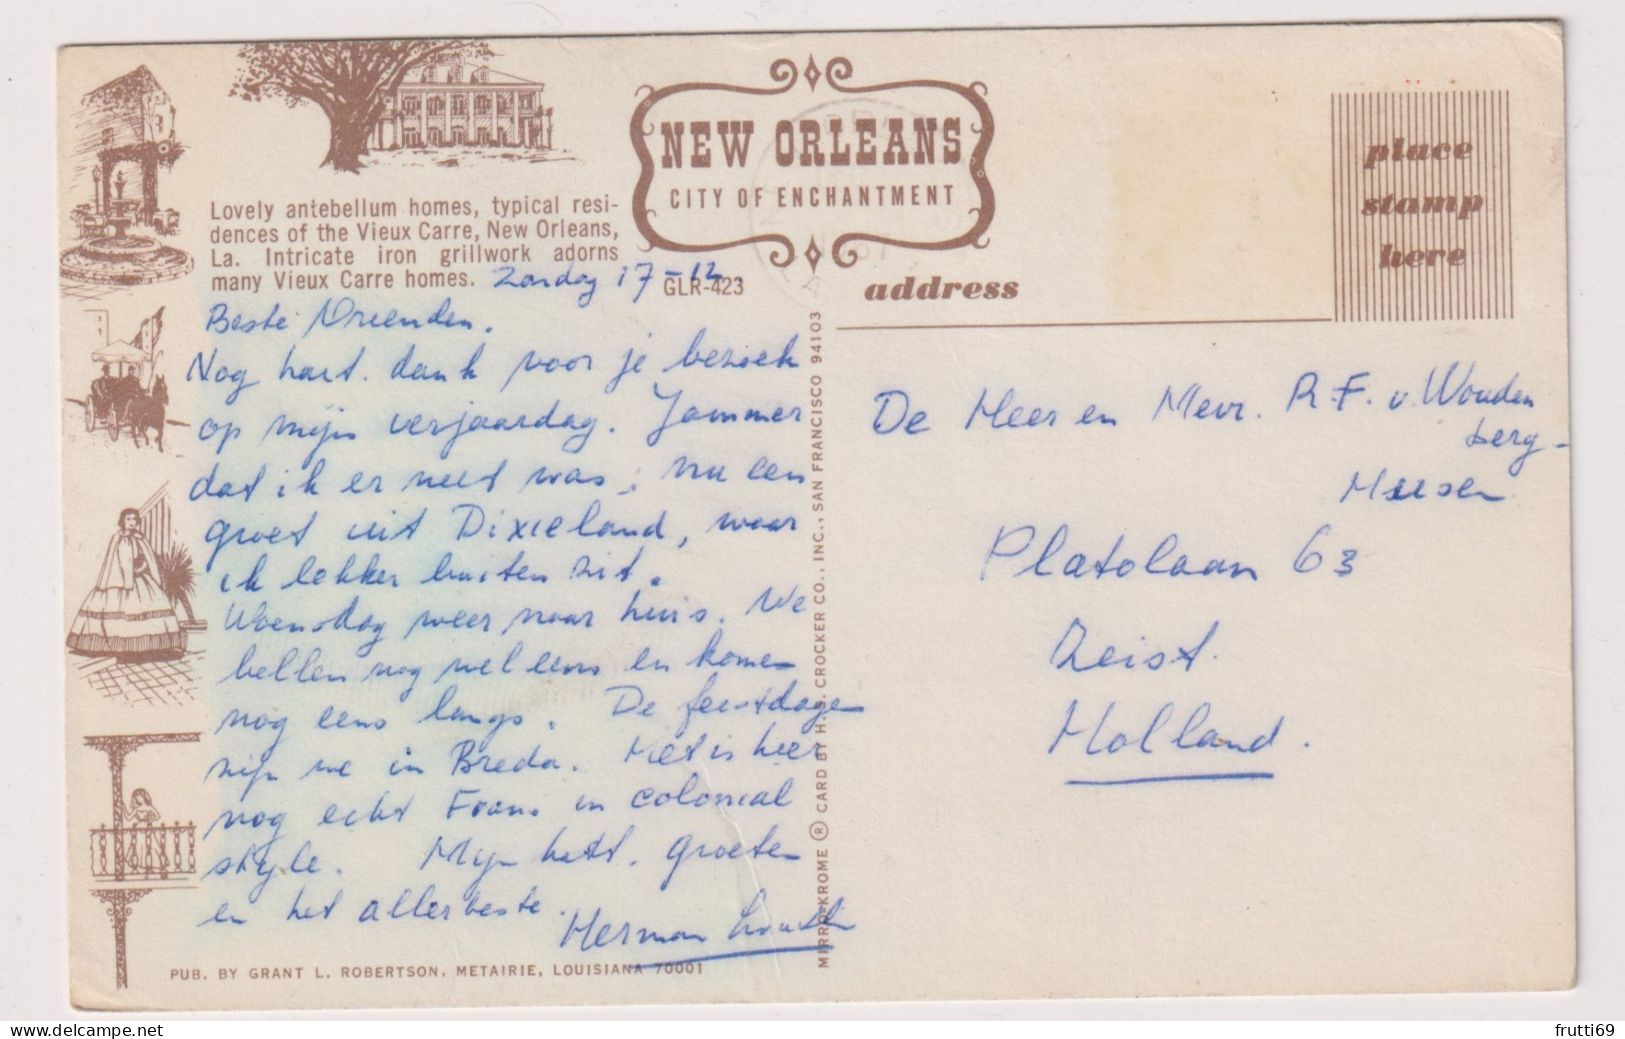 NEW ORLEANS
CITY OF ENCHANTMENT
place
stamp
here
Lovely antebellum homes, typical resi-
dences of the Vieux Carre, New Orleans,
La. Intricate iron grillwork adorns
many Vieux Carre homes.
GLR-423
address
Zondag 17-12
Beste Vrienden.
Nog hart. dank voor je bezoek
op mijn verjaardag. Jammer
dat ik er niet was, nu een
groet uit Dixieland, waar
ik lekker buiten zit.
Woensdag weer naar huis. We
bellen nog wel eens en komen
nog eens langs. De feestdagen
zijn we in Breda. Het is hier
nog echt Frans in colonial
style. Mijn hart. groeten
en het allerbeste.
Herman
De Heer en Mevr. R.F. v. Wouden
berg-
Meesen
Platolaan 63
Zeist.
Holland.
MIRRO-KROME ® CARD BY H.S. CROCKER CO., INC., SAN FRANCISCO 94103
PUB. BY GRANT L. ROBERTSON, METAIRIE, LOUISIANA 70001
frutti69